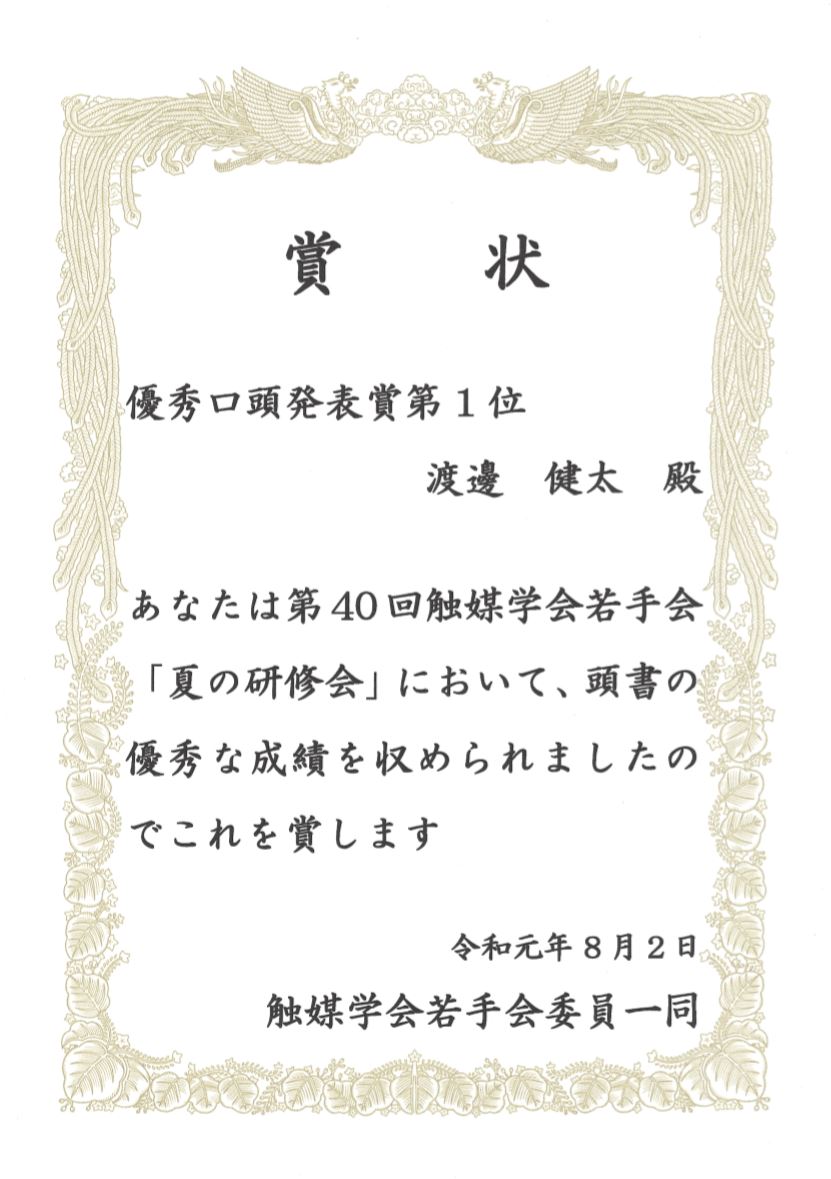 賞　状
優秀口頭発表賞第1位
渡邊　健太　殿
あなたは第40回触媒学会若手会
「夏の研修会」において、頭書の
優秀な成績を収められましたの
でこれを賞します
令和元年8月2日
触媒学会若手会委員一同